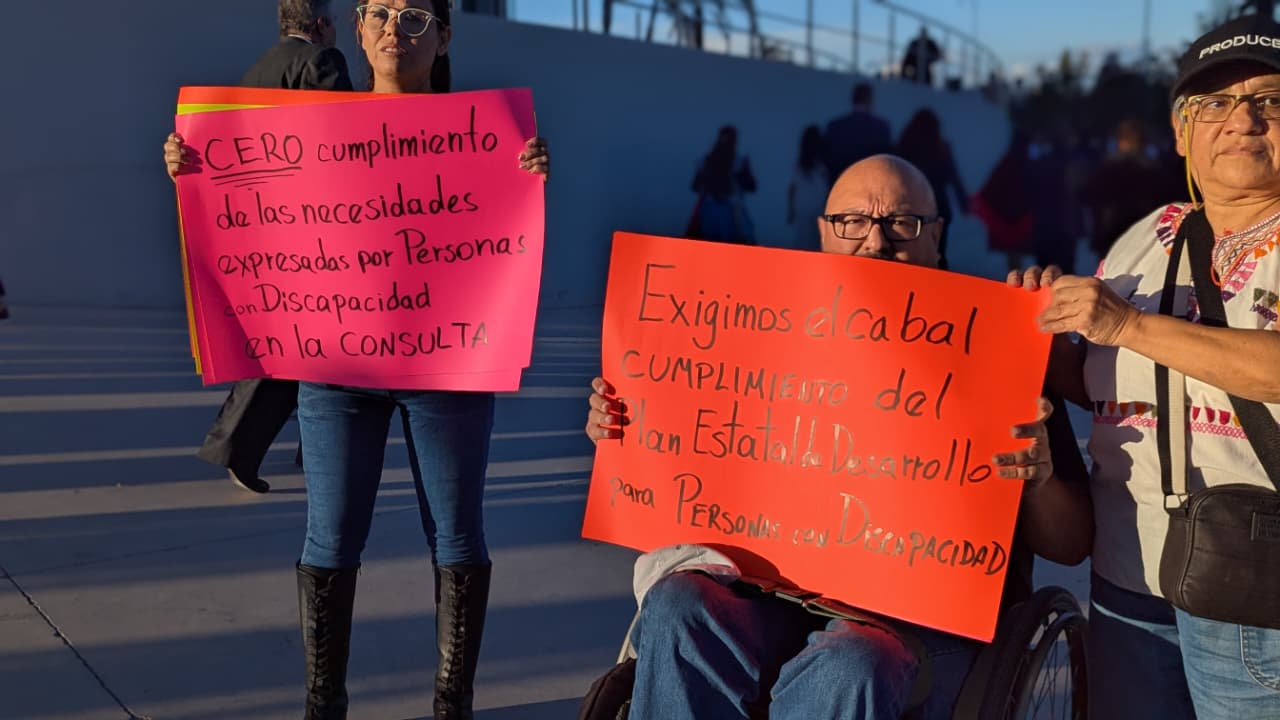 CERO cumplimiento
de las necesidades
expresadas por Personas
con Discapacidad
en la CONSULTA
Exigimos el cabal
CUMPLIMIENTO del
Plan Estatal de Desarrollo
para PERSONAS CON DISCAPACIDAD